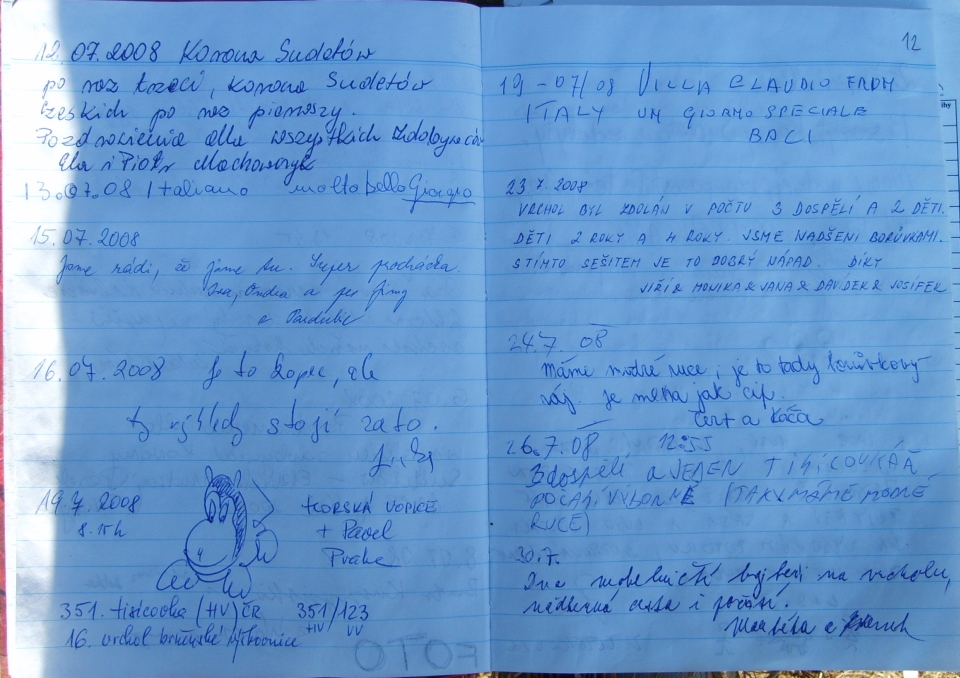 12.07.2008 Korona Sudetów
po raz trzeci, Korona Sudetów
Czeskich po raz pierwszy.
Pozdrowienia dla wszystkich zdobywców
Ela i Piotr
13.07.08 Italiano molto bello Giorgio
15.07.2008
Jsme rádi, že jsme tu. Super procházka.
Iva, Ondra a pes
z Pardubic
16.07.2008 Je to kopec, ale
ty výhledy stojí zato.
19.7.2008
8.15h
HORSKÁ VOPICE
+ Pavel
Praha
351. tisícovka (HV) ČR 351/123
HV VV
16. vrchol
FOTO
12
19-07/08 VILLA CLAUDIO FROM
ITALY UN GIORNO SPECIALE
BACI
23.7.2008
VRCHOL BYL ZDOLÁN V POČTU 3 DOSPĚLÍ A 2 DĚTI.
DĚTI 2 ROKY A 4 ROKY. JSME NADŠENI BORŮVKAMI.
S TÍMTO SEŠITEM JE TO DOBRÝ NÁPAD. DÍKY
JIŘÍ & MONIKA & JANA & DAVÍDEK & JOSÍFEK
24.7. 08
Máme modré ruce, je to tady borůvkový
ráj. Je
Čert a Káča
26.7.08 12:55
3 dospělí a JEDEN TISÍCOVKAŘ
POČASÍ VÝBORNÉ (TAKY MÁME MODRÉ
RUCE)
30.7.
Dva na vrcholu,
nádherná cesta i počasí.
Markéta a